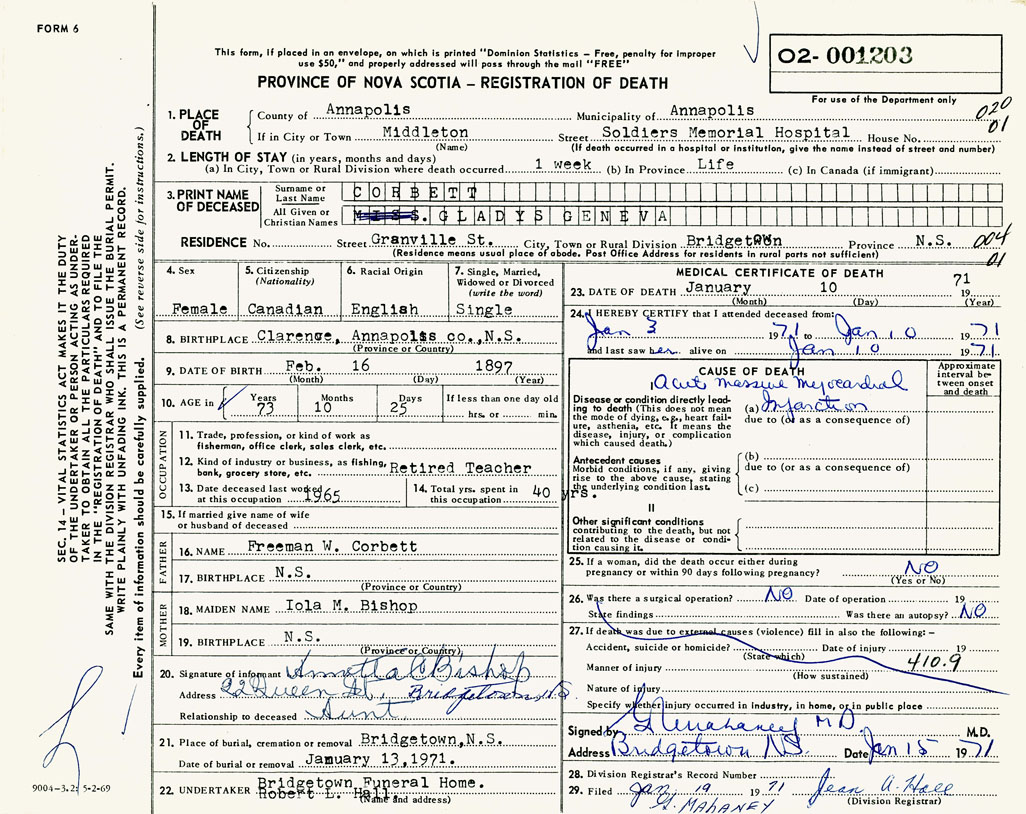 FORM 6
This form, if placed in an envelope, on which is printed "Dominion Statistics – Free, penalty for improper
use $50," and properly addressed will pass through the mail "FREE"
PROVINCE OF NOVA SCOTIA – REGISTRATION OF DEATH
02- 001203
For use of the Department only
020
01
1. PLACE OF DEATH
County of Annapolis Municipality of Annapolis
If in City or Town Middleton Street Soldiers Memorial Hospital House No.
(Name) (If death occurred in a hospital or institution, give the name instead of street and number)
2. LENGTH OF STAY (in years, months and days)
(a) In City, Town or Rural Division where death occurred 1 week (b) In Province Life (c) In Canada (if immigrant)
3. PRINT NAME OF DECEASED
Surname or Last Name CORBETT
All Given or Christian Names MISS. GLADYS GENEVA
RESIDENCE No. Street Granville St. City, Town or Rural Division Bridgetown Province N.S.
(Residence means usual place of abode. Post Office Address for residents in rural parts not sufficient)
004
01
4. Sex
Female
5. Citizenship
(Nationality)
Canadian
6. Racial Origin
English
7. Single, Married,
Widowed or Divorced
(write the word)
Single
8. BIRTHPLACE Clarence, Annapolis co., N.S.
(Province or Country)
9. DATE OF BIRTH Feb. 16 1897
(Month) (Day) (Year)
10. AGE in Years Months Days If less than one day old
73 10 25 hrs. or min.
OCCUPATION
11. Trade, profession, or kind of work as
fisherman, office clerk, sales clerk, etc.
12. Kind of industry or business, as fishing,
bank, grocery store, etc. Retired Teacher
13. Date deceased last worked
at this occupation 1965
14. Total yrs. spent in
this occupation 40 yrs.
15. If married give name of wife
or husband of deceased
FATHER
16. NAME Freeman W. Corbett
17. BIRTHPLACE N.S.
(Province or Country)
MOTHER
18. MAIDEN NAME Iola M. Bishop
19. BIRTHPLACE N.S.
(Province or Country)
20. Signature of informant Annetta C Bishop
Address Queen St., Bridgetown, N.S.
Relationship to deceased Aunt
21. Place of burial, cremation or removal Bridgetown, N.S.
Date of burial or removal January 13, 1971.
22. UNDERTAKER Bridgetown Funeral Home.
Robert L. Hall
(Name and address)
MEDICAL CERTIFICATE OF DEATH
23. DATE OF DEATH January 10 19 71
(Month) (Day) (Year)
24. I HEREBY CERTIFY that I attended deceased from:
Jan 3 1971 to Jan 10 1971
and last saw her alive on Jan 10 1971
CAUSE OF DEATH
Approximate interval between onset and death
I
Disease or condition directly leading
to death (This does not mean
the mode of dying, e.g., heart failure,
asthenia, etc. It means the
disease, injury, or complication
which caused death.)
Acute massive myocardial
(a) Infarction
due to (or as a consequence of)
Antecedent causes
Morbid conditions, if any, giving
rise to the above cause, stating
the underlying condition last.
(b)
due to (or as a consequence of)
(c)
II
Other significant conditions
contributing to the death, but not
related to the disease or condition
causing it.
25. If a woman, did the death occur either during
pregnancy or within 90 days following pregnancy? NO
(Yes or No)
26. Was there a surgical operation? NO Date of operation 19
State findings Was there an autopsy? NO
27. If death was due to external causes (violence) fill in also the following: –
Accident, suicide or homicide? Date of injury 19
(State which)
410.9
Manner of injury
(How sustained)
Nature of injury
Specify whether injury occurred in industry, in home, or in public place
Signed by G Mahaney M.D. M.D.
Address Bridgetown NS Date Jan 15 1971
28. Division Registrar's Record Number
29. Filed Jan. 19 1971 Jean A. Hall
(Division Registrar)
G. MAHANEY
SEC. 14 – VITAL STATISTICS ACT MAKES IT THE DUTY
OF THE UNDERTAKER OR PERSON ACTING AS UNDERTAKER
TO OBTAIN ALL THE PARTICULARS REQUIRED
IN THE "REGISTRATION OF DEATH" AND TO FILE THE
SAME WITH THE DIVISION REGISTRAR WHO SHALL ISSUE THE BURIAL PERMIT.
WRITE PLAINLY WITH UNFADING INK. THIS IS A PERMANENT RECORD.
Every item of information should be carefully supplied. (See reverse side for instructions.)
9004-3.2: 5-2-69